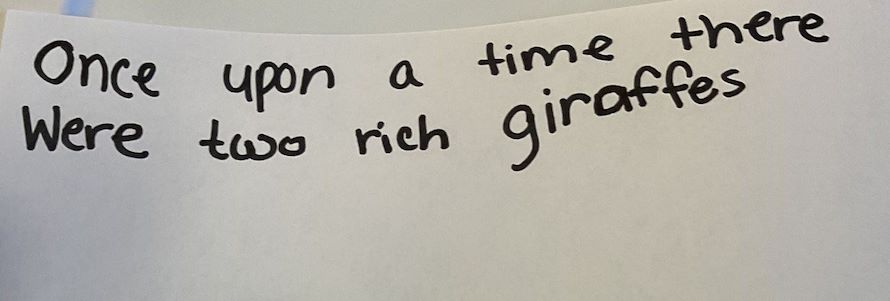 Once upon a time there
Were two rich giraffes